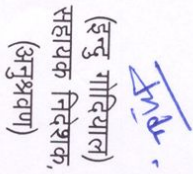 Indu.
(इन्दु गोदियाल)
सहायक निदेशक,
(अनुश्रवण)